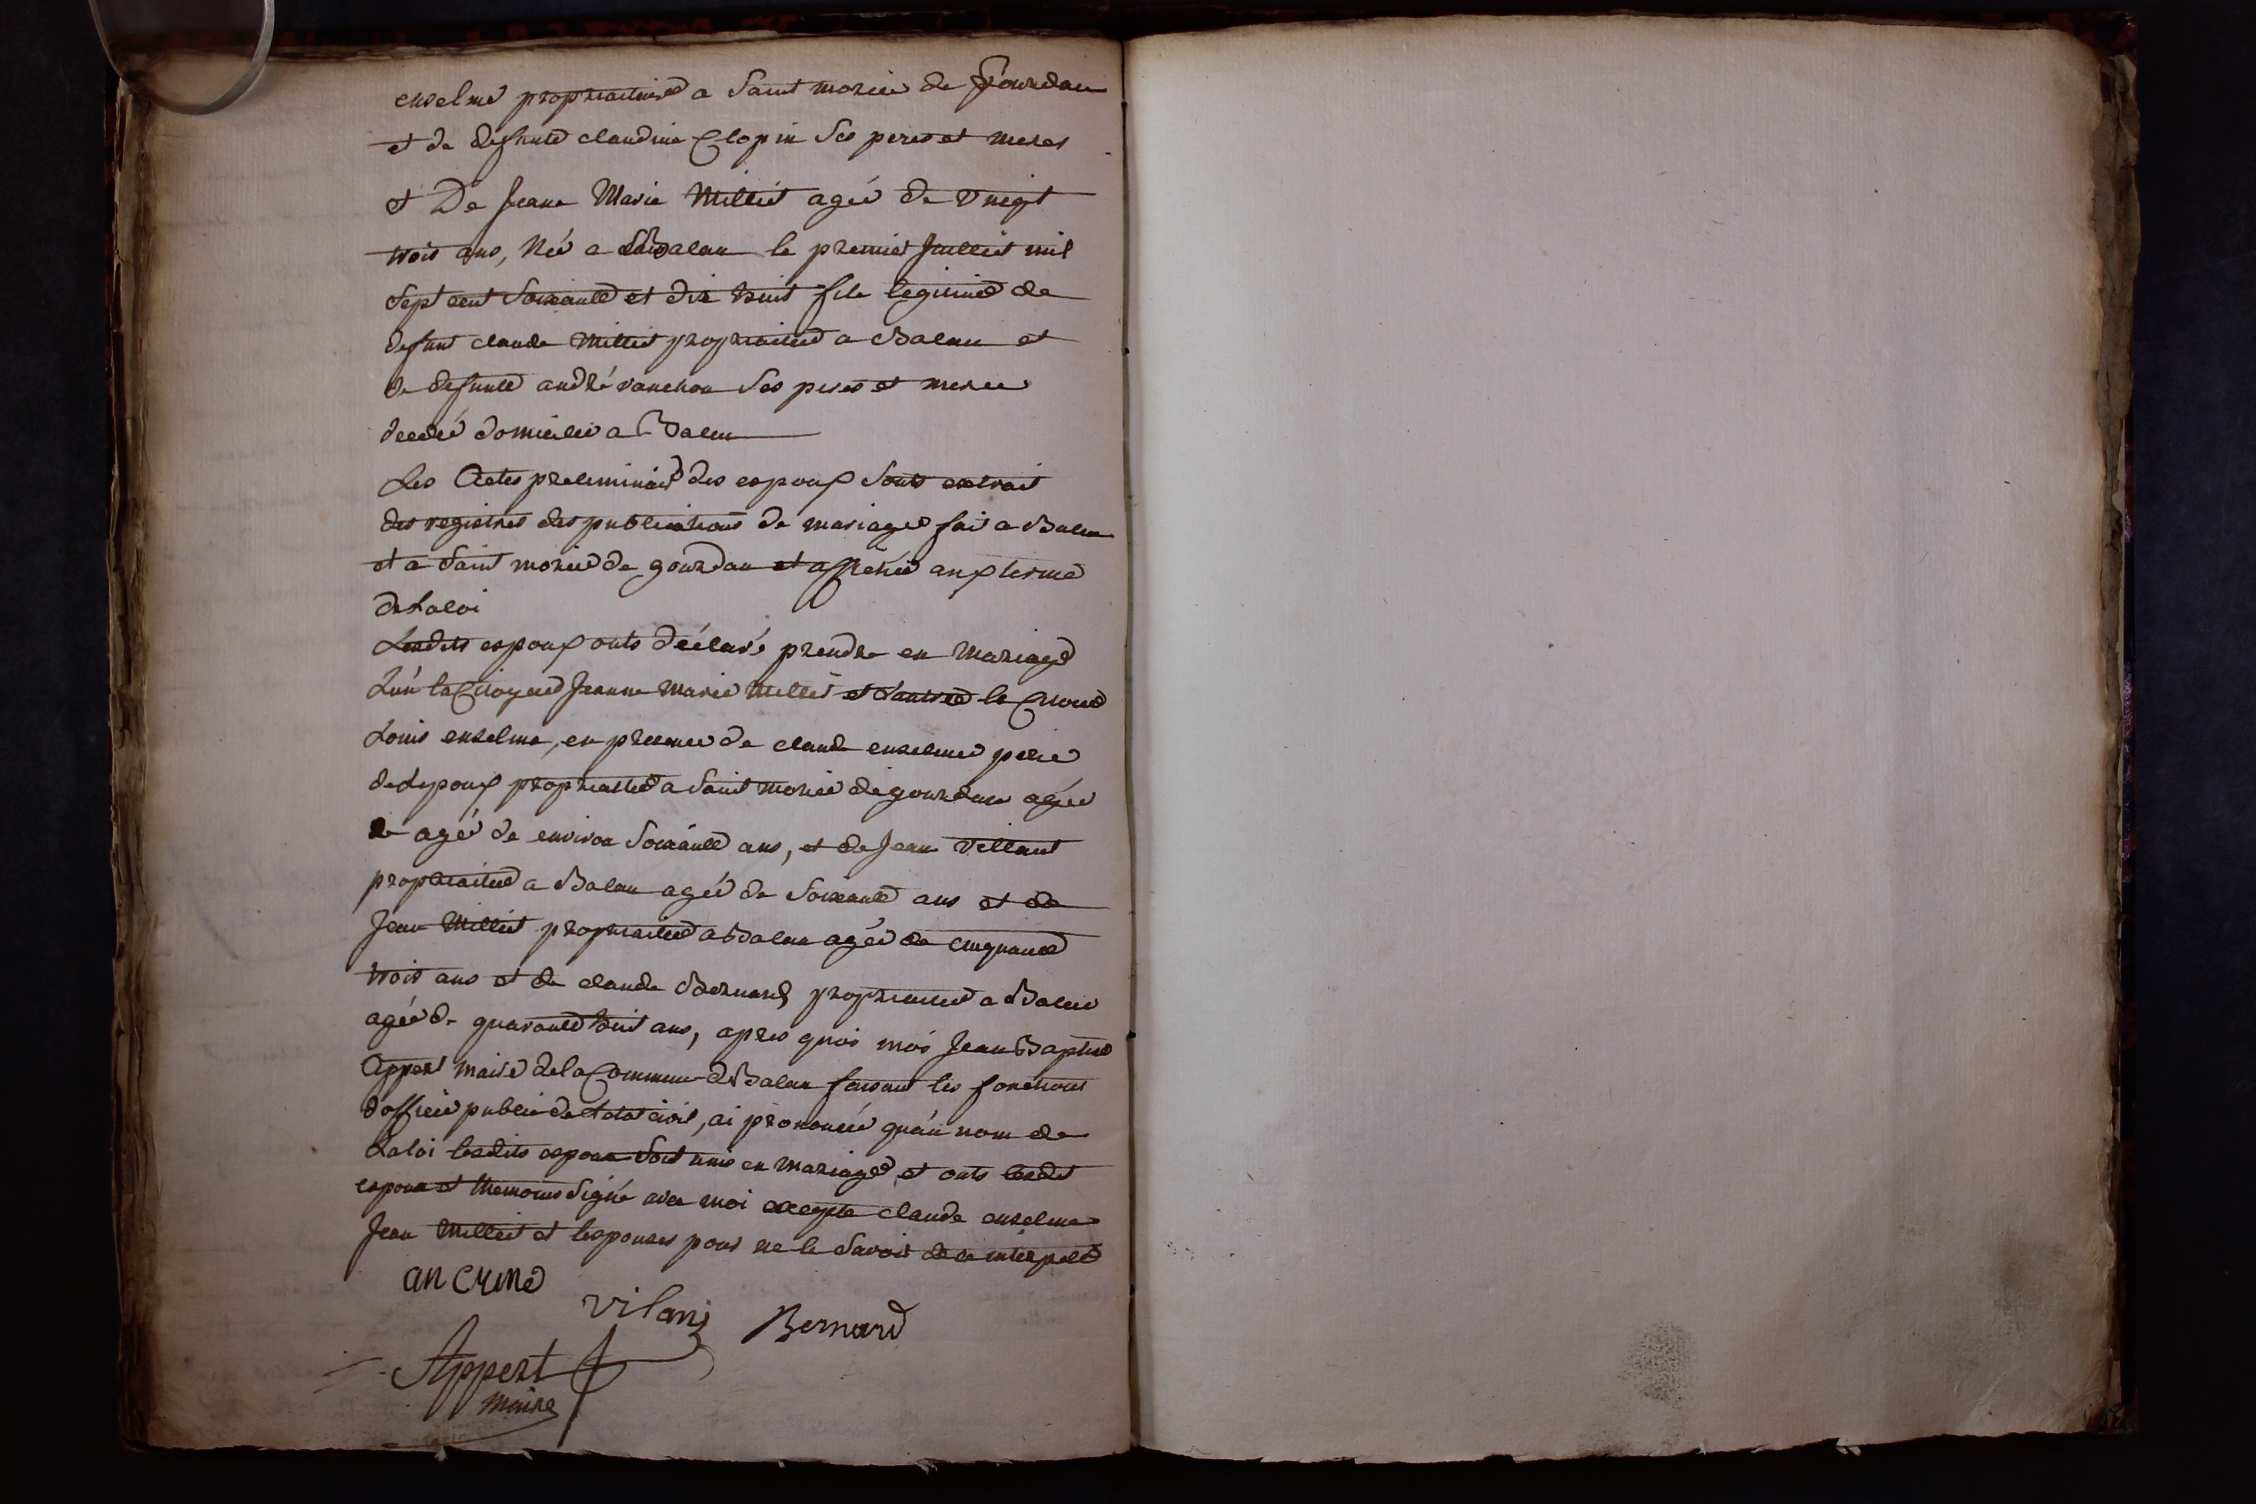 enselme propriaitaire a Saint morice de Gourdan
et de defunte claudine Clopin Ses peres et meres
et De Jeane Marie Milliet agée de vingt
trois ans, Née a Balan le premier Juilliet mil
Sept cent Soixante et dix huit file legitime de
defunt claude Milliet propriaitaire a Balan et
de defunte andré vanchon Ses peres et meres
decedé domicilié a Balan
Les Actes preliminair des espoux Sonts extrait
des registres des publications de mariages fait a Balan
et a Saint morice de gourdan et affiché aux terme
de Laloi
Lesdits espoux onts déclaré prendre en Mariage
L'un la Citoyene Jeanne Marie Milliet et l'autre le Citoien
Louis enselme, en presence de claude enselme pere
de Lepoux propriaiter a Saint morice de gourdan agée
agé de environ Soixante ans, et de Jean Villant
propriaitaire a Balan agée de Soixante ans et de
Jean Milliet propriaitaire a Balan agée de cinquante
trois ans et de claude Bernard propriaitaire a Balan
agée de quarante huit ans, apres quoi moi Jean Baptiste
Appert Maire de la Commune de Balan faisant les fonctions
d'officié public de Letat civil, ai prononcée qu'au nom de
La loi lesdits espoux Sont unis en Mariage, et onts lesdit
espoux et themoins Signé avec moi excepte claude enselme
Jean Milliet et lespouses pour ne le Savoir de ce interpelé
an cume
vilan Bernard
Appert
maire